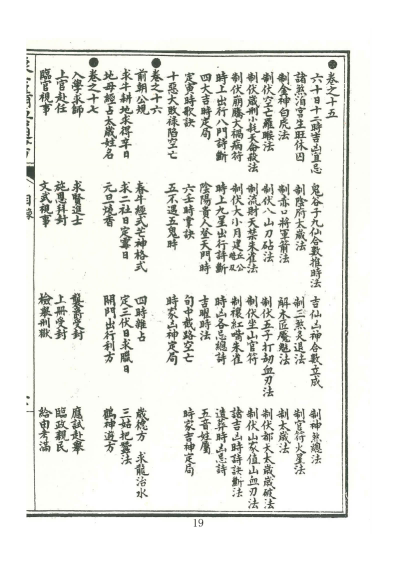 卷之十五
六十日十二時吉凶宜忌 鬼谷子九仙合數推時法 吉仙凶神合數立成 制神煞總法
諸煞泊宮生旺休囚 制陰府太歲法 制三煞灸退法 制官符火星法
制金神白虎法 制赤口將軍箭法 解木匠魘魅法 制太歲法
制伏空亡羅睺法 制伏八山刀砧法 制伏五子打劫血刃法 制伏部天太歲歲破法
制伏歲刑小耗天命殺法 制流財天禁朱雀法 制伏坐山官符 制伏山家值山血刃法
制伏崩騰大禍病符 制伏大小月建 制禳紅嘴朱雀 諸吉凶時詩訣斷法
時上出行八門詩斷 時上九星出行詩斷 時凶各忌總詩 遣葬時凶忌詩
四大吉時定局 陰陽貴人登天門時 吉曜時法 五音姓屬
定寅時歌訣 六壬時掌訣 旬中截路空亡 時家吉神定局
十惡大敗祿陷空亡 五不遇五鬼時 時家凶神定局
卷之十六
前朝公規 春牛經式芒神格式 四時雜占 歲德方 求龍治水
求牛耕地求得辛日 求二社日定霉日 定三伏日求臘日 三姑把蠶法
地母經占太歲姓名 元旦燒香 開門出行利方 鶴神遊方
卷之十七
入學求師 求賢進士 襲爵受封 應試赴舉
上官赴任 施恩拜封 上冊受封 臨政親民
臨官視事 文武視事 檢舉刑獄 給由考滿
目錄
19